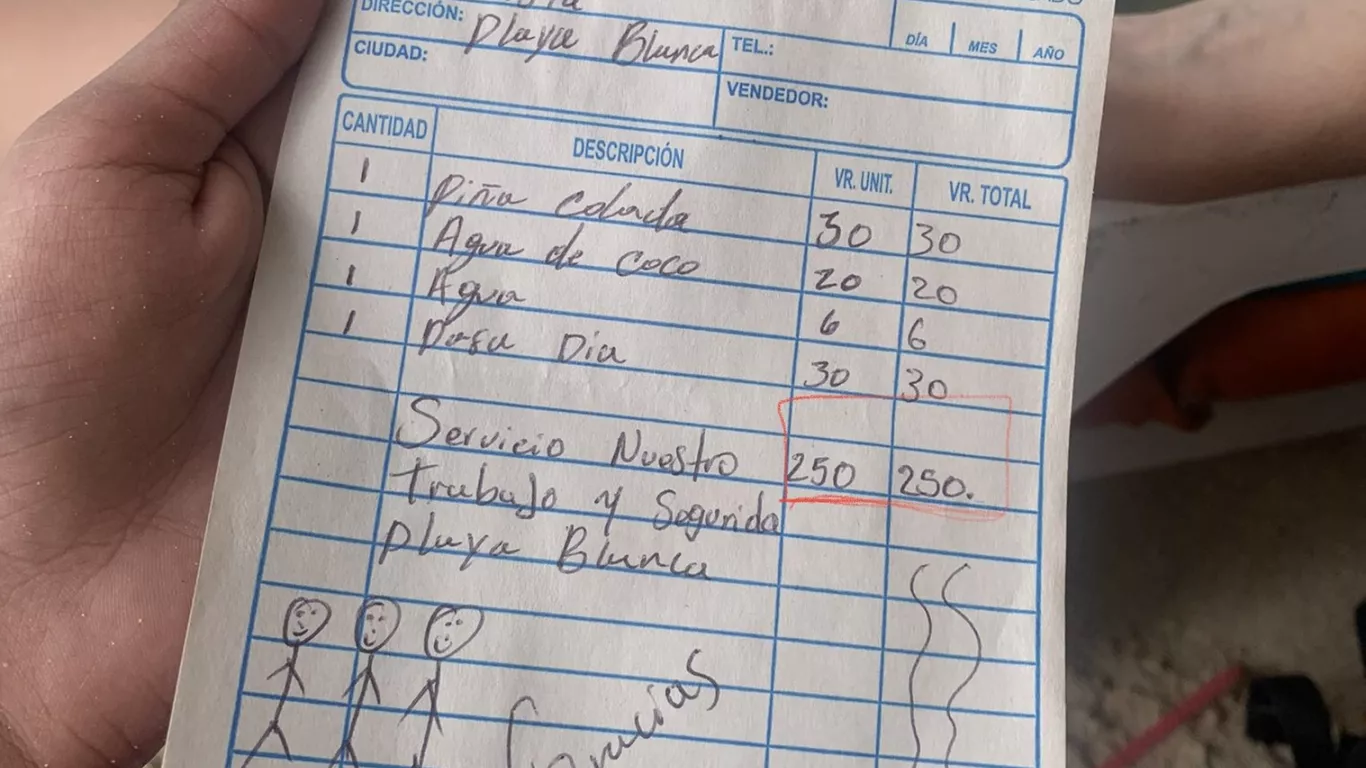 DIRECCIÓN: Playa Blanca TEL.: DÍA MES AÑO
CIUDAD: VENDEDOR:
CANTIDAD DESCRIPCIÓN VR. UNIT. VR. TOTAL
1 Piña Colada 30 30
1 Agua de coco 20 20
1 Agua 6 6
1 Pasa Dia 30 30
Servicio Nuestro 250 250.
Trabajo y Segunda
Playa Blanca
Gracias